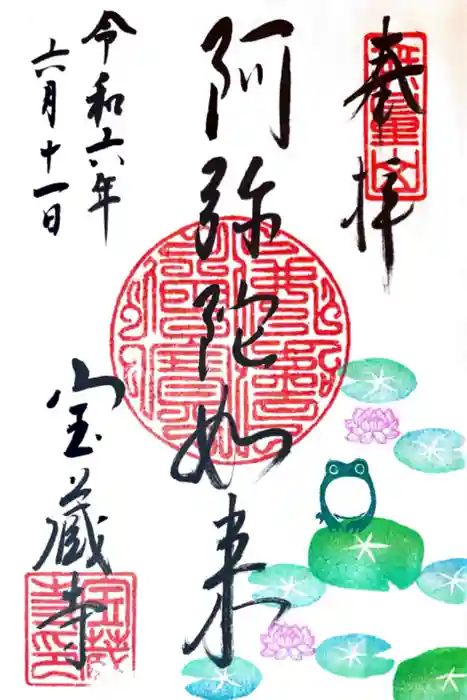 奉拝
阿弥陀如来
令和六年
六月十一日
宝蔵寺